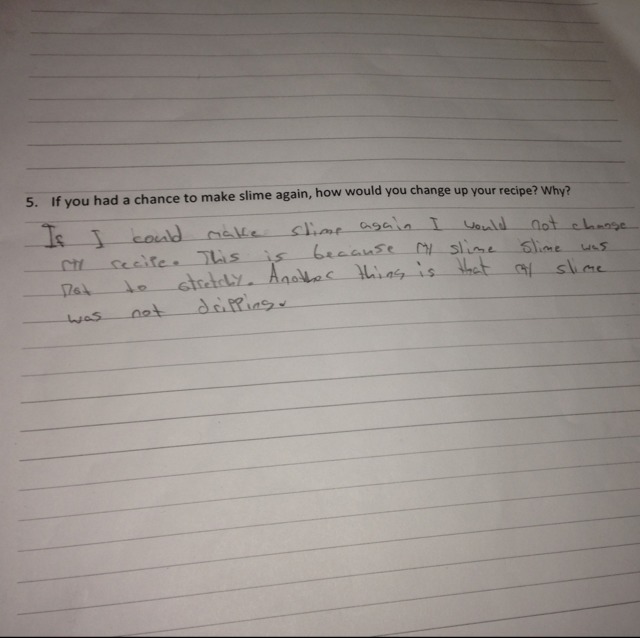 5. If you had a chance to make slime again, how would you change up your recipe? Why?
If I could make slime again I would not change
my recipe. This is because my slime slime was
not to stretchy. Another thing is that my slime
was not dripping.